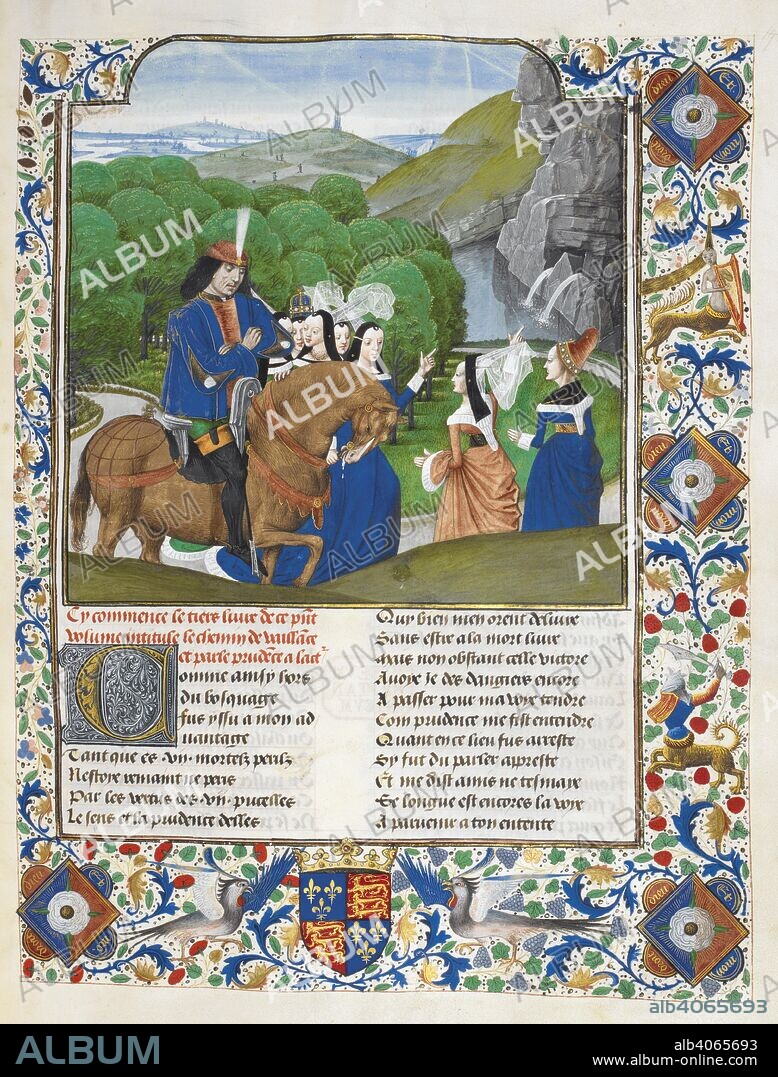 Cy commence le tiers livre de ce pnt
volume intitule le chemin de vaillance
et parle prudence a lact
Comme ainsy hors
du bosquage
fus yssu a mon ad
uantage
Tant que es .vii. mortelz perilz
Nestoye venu ne peris
Par les vertus des .vii. pucelles
Le sens et la prudence delles
Quy bien men orent deliure
Sans estre a la mort liure
Mais non obstant celle victore
Auoye Je des dangiers encore
A passer pour ma voye tendre
Com prudence me fist entendre
Quant en ce lieu fus arreste
Sy fut du parler apreste
Et me dist amis ne tesmaye
Se longue est encores la voye
A paruenir a ton entente
ALBUM
alb4065693
ALBUM
alb4065693
www.album-online.com